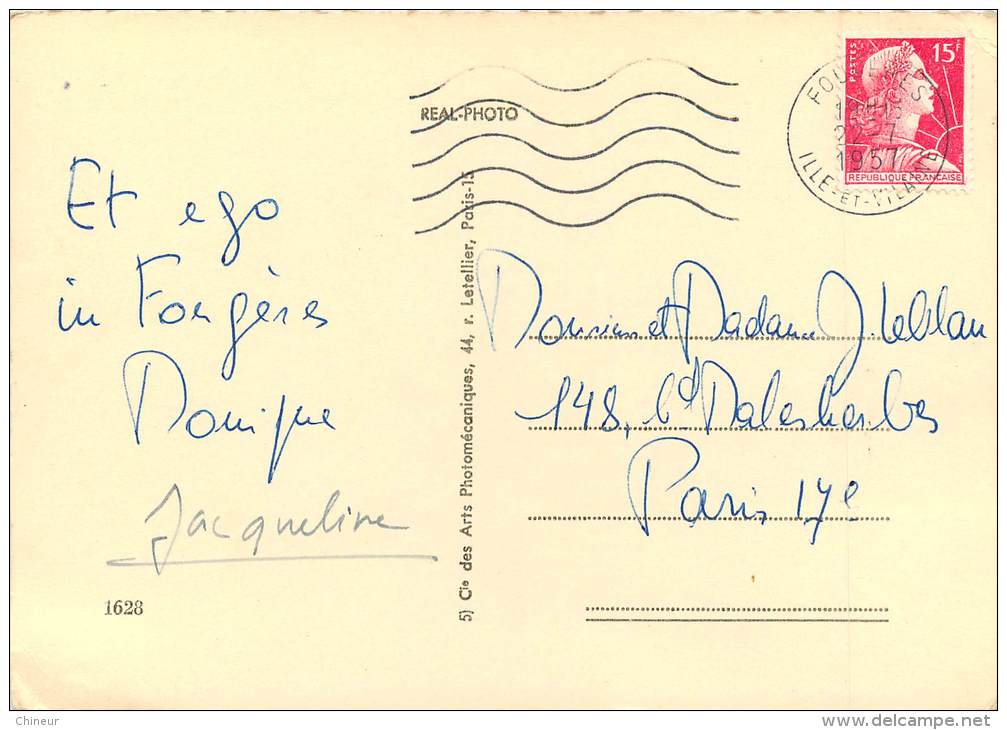 REAL-PHOTO
POSTES
15F
REPUBLIQUE FRANÇAISE
FOUGERES
22-7
1957
ILLE-ET-VILAINE
Et ego
in Fougères
Monique
Jacqueline
1628
5) Cie des Arts Photomécaniques, 44, r. Letellier, Paris-15
Monsieur et Madame J. Leblan
148, Bd Malesherbes
Paris 17e
Chineur
www.delcampe.net